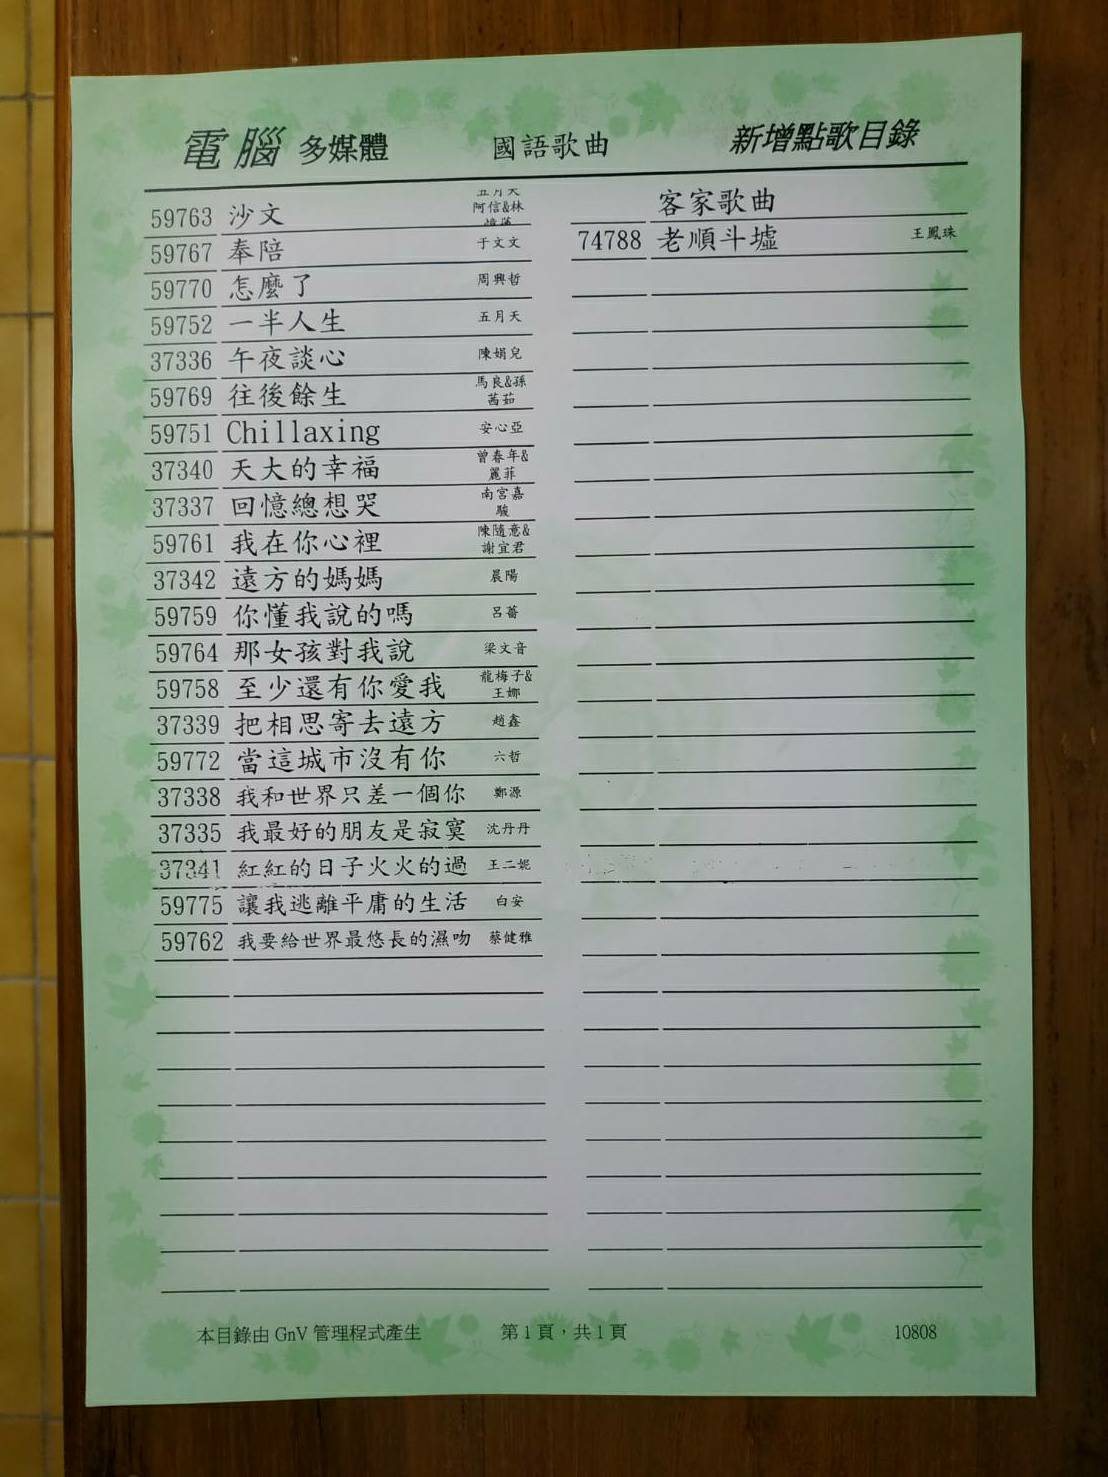 電腦 多媒體 國語歌曲 新增點歌目錄
59763 沙文 五月天阿信&林
59767 奉陪 于文文
59770 怎麼了 周興哲
59752 一半人生 五月天
37336 午夜談心 陳娟兒
59769 往後餘生 馬良&孫茜茹
59751 Chillaxing 安心亞
37340 天大的幸福 曾春年&麗菲
37337 回憶總想哭 南宮嘉駿
59761 我在你心裡 陳隨意&謝宜君
37342 遠方的媽媽 晨陽
59759 你懂我說的嗎 呂薔
59764 那女孩對我說 梁文音
59758 至少還有你愛我 龍梅子&王娜
37339 把相思寄去遠方 趙鑫
59772 當這城市沒有你 六哲
37338 我和世界只差一個你 鄭源
37335 我最好的朋友是寂寞 沈丹丹
37341 紅紅的日子火火的過 王二妮
59775 讓我逃離平庸的生活 白安
59762 我要給世界最悠長的濕吻 蔡健雅
客家歌曲
74788 老順斗墟 王鳳珠
本目錄由 GnV 管理程式產生 第 1 頁，共 1 頁 10808